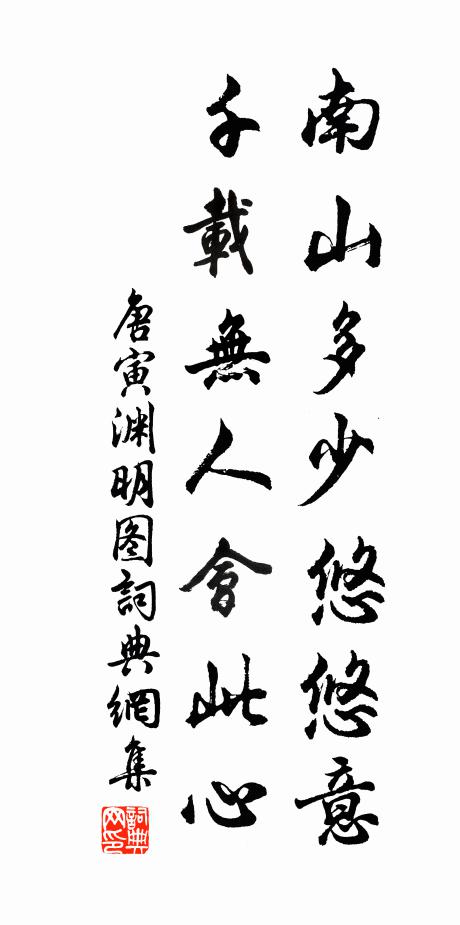 南山多少悠悠意
千載無人會此心
唐寅渊明图詞典網集
詞典
网印